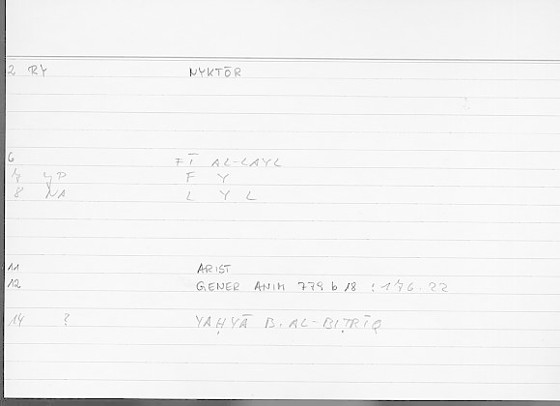 2 RY NYKTŌR
6 FĪ AL-LAYL
F Y
8 NA L Y L
11 ARIST
12 GENER ANIM 779 b 18 : 176.22
14 ? YAḤYĀ B. AL-BIṬRĪQ